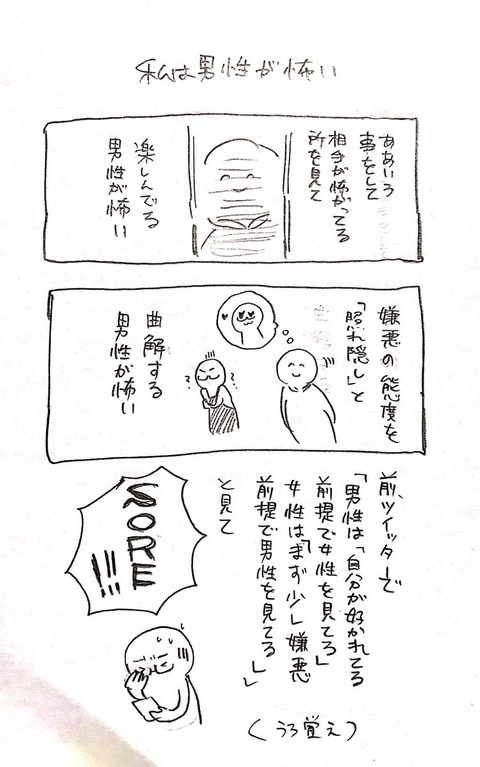 私は男性が怖い
ああいう
事をして
相手が怖がってる
所を見て
楽しんでる
男性が怖い
嫌悪の態度を
「照れ隠し」と
曲解する
男性が怖い
前、ツイッターで
「男性は「自分が好かれてる
前提で女性を見てる」
女性は「まず少し嫌悪
前提で男性を見てる」」
と見て
SORE
!!!
(うろ覚え)